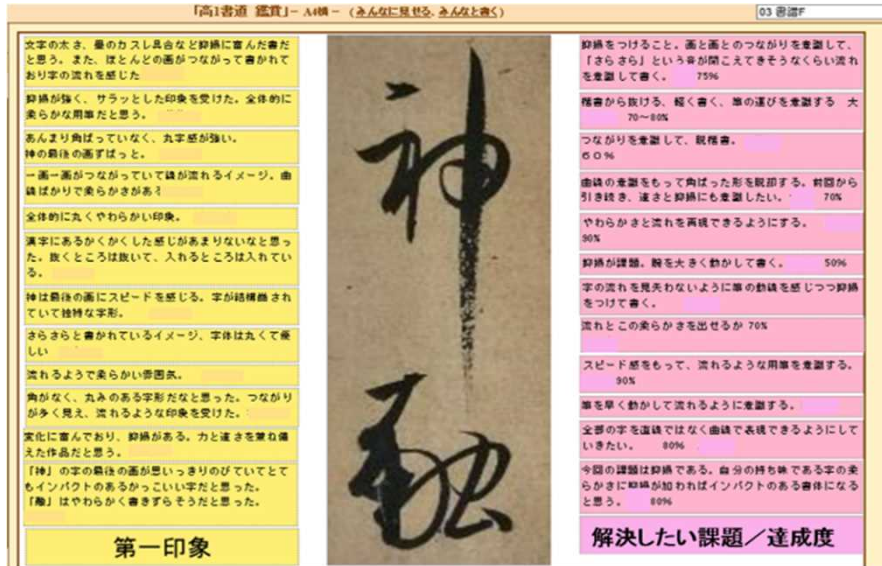 「高1書道 鑑賞」- A4横 - (みんなに見せる, みんなと書く)
03 書譜F
文字の太さ、墨のカスレ具合など抑揚に富んだ書だ
と思う。また、ほとんどの画がつながって書かれて
おり字の流れを感じた
抑揚が強く、サラッとした印象を受けた。全体的に
柔らかな用筆だと思う。
あんまり角ばっていなく、丸字感が強い。
神の最後の画ずばっと。
一画一画がつながっていて線が流れるイメージ。曲
線ばかりで柔らかさがある
全体的に丸くやわらかい印象。
漢字にあるかくかくした感じがあまりないなと思っ
た。抜くところは抜いて、入れるところは入れてい
る。
神は最後の画にスピードを感じる。字が結構崩され
ていて独特な字形。
さらさらと書かれているイメージ、字体は丸くて優
しい
流れるようで柔らかい雰囲気。
角がなく、丸みのある字形だなと思った。つながり
が多く見え、流れるような印象を受けた。
変化に富んでおり、抑揚がある。力と速さを兼ね備
えた作品だと思う。
「神」の字の最後の画が思いっきりのびていてとて
もインパクトのあるかっこいい字だと思った。
「融」はやわらかく書きずらそうだと思った。
第一印象
神
融
抑揚をつけること。画と画とのつながりを意識して、
「さらさら」という音が聞こえてきそうなくらい流れ
を意識して書く。 75%
楷書から抜ける、軽く書く、筆の運びを意識する 大
70～80%
つながりを意識して、脱楷書。
60%
曲線の意識をもって角ばった形を脱却する。前回から
引き続き、速さと抑揚にも意識したい。 70%
やわらかさと流れを再現できるようにする。
90%
抑揚が課題。腕を大きく動かして書く。 50%
字の流れを見失わないように筆の動線を感じつつ抑揚
をつけて書く。
流れとこの柔らかさを出せるか 70%
スピード感をもって、流れるような用筆を意識する。
90%
筆を早く動かして流れるように意識する。
全部の字を直線ではなく曲線で表現できるようにして
いきたい。 80%
今回の課題は抑揚である。自分の持ち味である字の柔
らかさに抑揚が加わればインパクトのある書体になる
と思う。 80%
解決したい課題／達成度